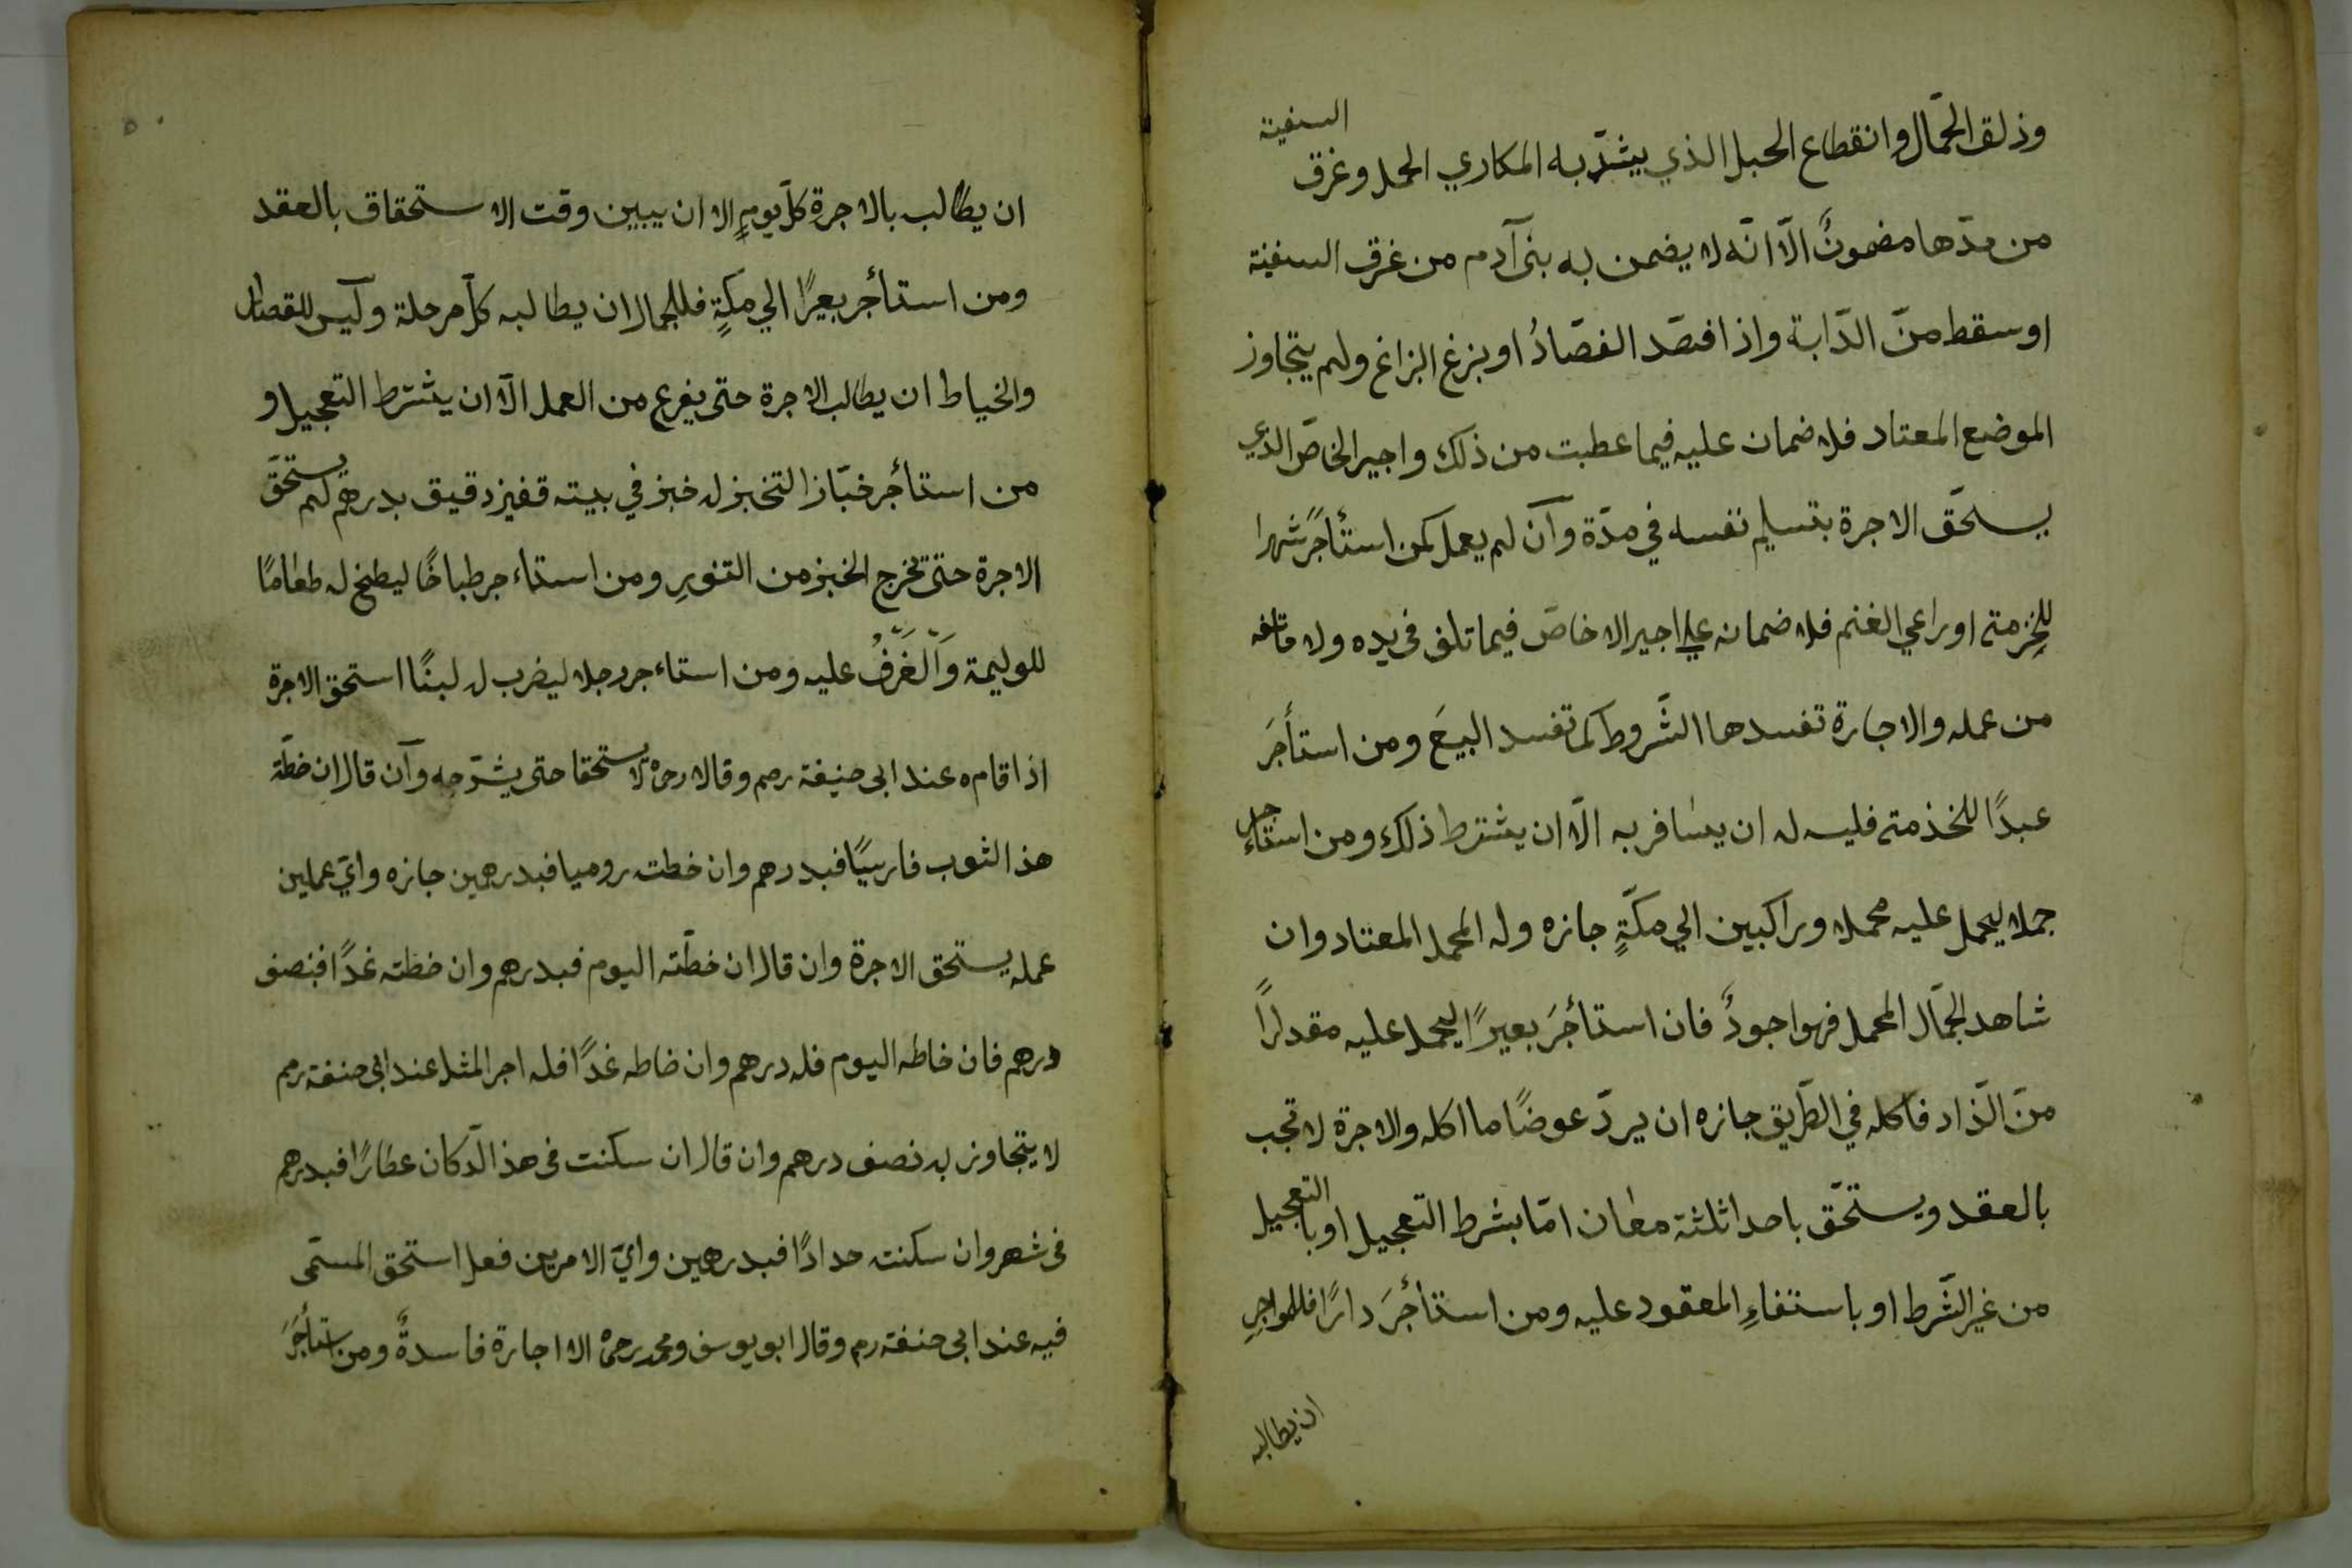 وذلق الحمّال وانقطاع الحبل الذي يشدّ به المكاري الحمل وغرق السفينة
من مدّها مضمونٌ الّا انّه لا يضمن به بنى آدم من غرق السفينة
او سقط منّ الدّابة واذا فصّد الفصّادُ او بزغ البزاغ ولم يتجاوز
الموضع المعتاد فلا ضمان عليه فيما عطبت من ذلك واجير الخاصّ الذي
يسلحقّ الاجرة بتسليم نفسه في مدّة وآن لم يعمل كمن استأجرً شهرا
للخزمته او راعي الغنم فلا ضمانه علي اجير الاخاصّ فيما تلف في يده ولا ماتلفه
من عمله والاجارة تفسدها الشّروط كما تفسد البيعَ ومن استأجرَ
عبدًا للخذمته فليسه له ان يسافر به الّا ان يشترط ذلك ومن استاءجر
جملا ليحمل عليه محملا وراكبين الي مكّةٍ جازه وله المحمل المعتاد وان
شاهد الجمّال المحمل فهو اجودُ فان استأجرَ بعيرًا ليحمل عليه مقدارًا
منّ الزّاد فاكله في الطّريق جازه ان يردّ عوضًا ما اكله والاجرة لا تجب
بالعقد ويستحّق باحدا ثلثة معان امّا بشرط التعجيل او بالتعجيل
من غير الشّرط او باستفاءِ المعقود عليه ومن استأجرَ دارًا فللمواجرِ
ان يطالبه
ان يطالب بالاجرة كلّ يومٍ الا ان يبين وقت الاستحقاق بالعقد
ومن استأجر بعيرًا الي مكّةٍ فللجمال ان يطالبه كلّ مرحلة وليس للقصار
والخياط ان يطالب الاجرة حتى يفرع من العمل الّا ان يشترط التعجيل و
من استأجر خبّازا لتخبز له خبز في بيته قفيز دقيق بدرهم لم يستحقّ
الاجرة حتى تخرج الخبز من التنورِ ومن استاءجر طباخًا ليطبخ له طعامًا
للوليمة وَالْغَرْفُ عليه ومن استاءجر رجلا ليضرب له لبنًا استحق الاجرة
اذا اقامه عند ابى حنيفة رحم وقالا رحه لا يستحقا حتى يشرّجه وآن قال ان خطّة
هذا الثوب فارسيًا فبدرهم وان خطت روميا فبدرهمين جازه وايّ عملين
عمله يستحق الاجرة وان قال ان خطّته اليوم فبدرهم وان خطته غدًا فبنصف
درهم فان خاطه اليوم فله درهم وان خاطه غدًا فله اجر المثل عند ابى حنفة رحم
لا يتجاوز به نصف درهم وان قال ان سكنت فى هذ الدّكان عطارًا فبدرهم
فى شهر وان سكنت حدادًا فبدرهمين وايّ الامرين فعل استحق المسمّى
فيه عند ابى حنفة رم وقال ابو يوسف ومحمد رحه الا اجارة فاسدةٌ ومن استأجرَ